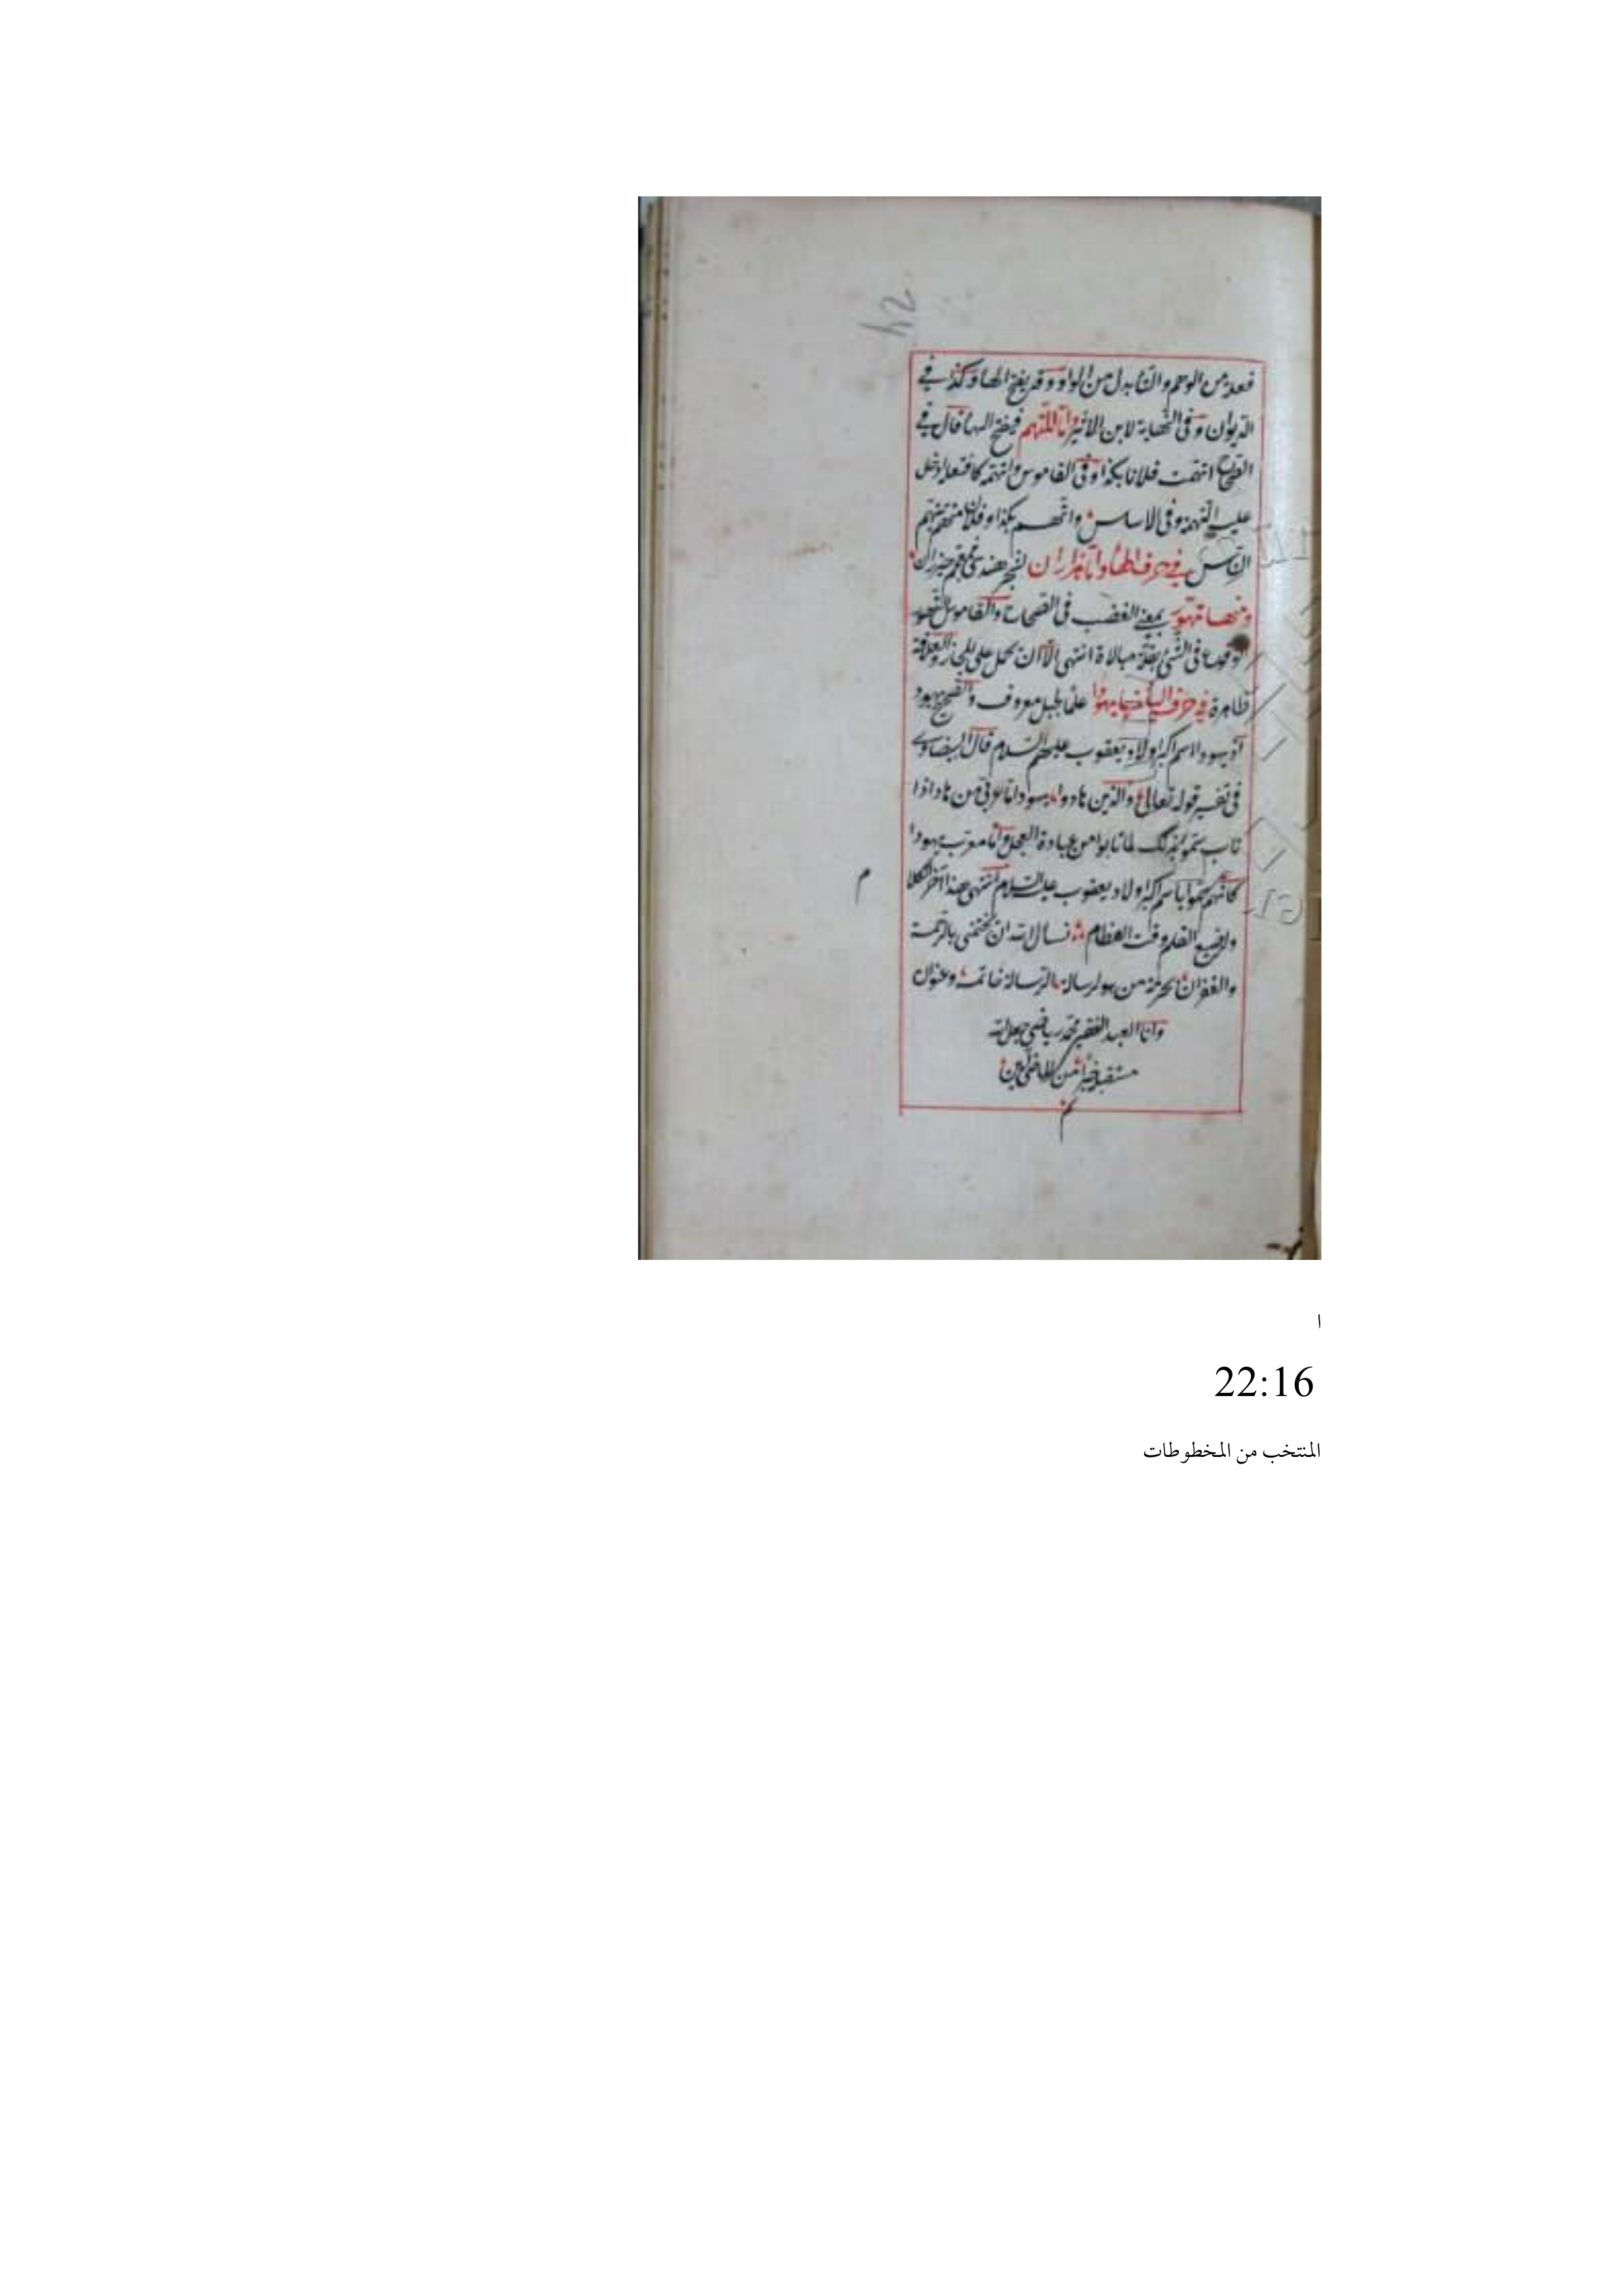 فعلة من الوهم والتاء بدل من الواو وقد يفتح الهاء وكذا في
الديوان وفي النهاية لابن الاثير واما المتهم فبفتح الهاء قال في
الصحاح اتهمت فلانا بكذا وفي القاموس واتهمه كافتعله ادخل
عليه التهمة وفي الاساس واتهم بكذا وفلان
الناس في حرف الهاء
ومنها تهور بمعنى الغضب في الصحاح والقاموس التهور
الوقوع في الشئ بقلة مبالاة انتهى الا ان يحمل على المجاز والعلاقة
ظاهرة في حرف الياء يهودا علما لجبل معروف والصحيح يهود
او يهودا اسم اكبر اولاد يعقوب عليهم السلام قال البيضاوي
في تفسير قوله تعالى والذين هادوا يهود اما عربي من هاد اذا
تاب سموا بذلك لما تابوا من عبادة العجل واما معرب يهودا
كانهم سموا باسم اكبر اولاد يعقوب عليه السلام انتهى هذا آخر الكلا
م
نسأل الله ان يختمني بالرحمة
والغفران بحرمة من هو لرسالة الرسالة خاتمة وعنوان
وانا العبد الفقير محمد رياضي جعل الله
مستقبله خيرا من الماضي
تم
ا
22:16
المنتخب من المخطوطات